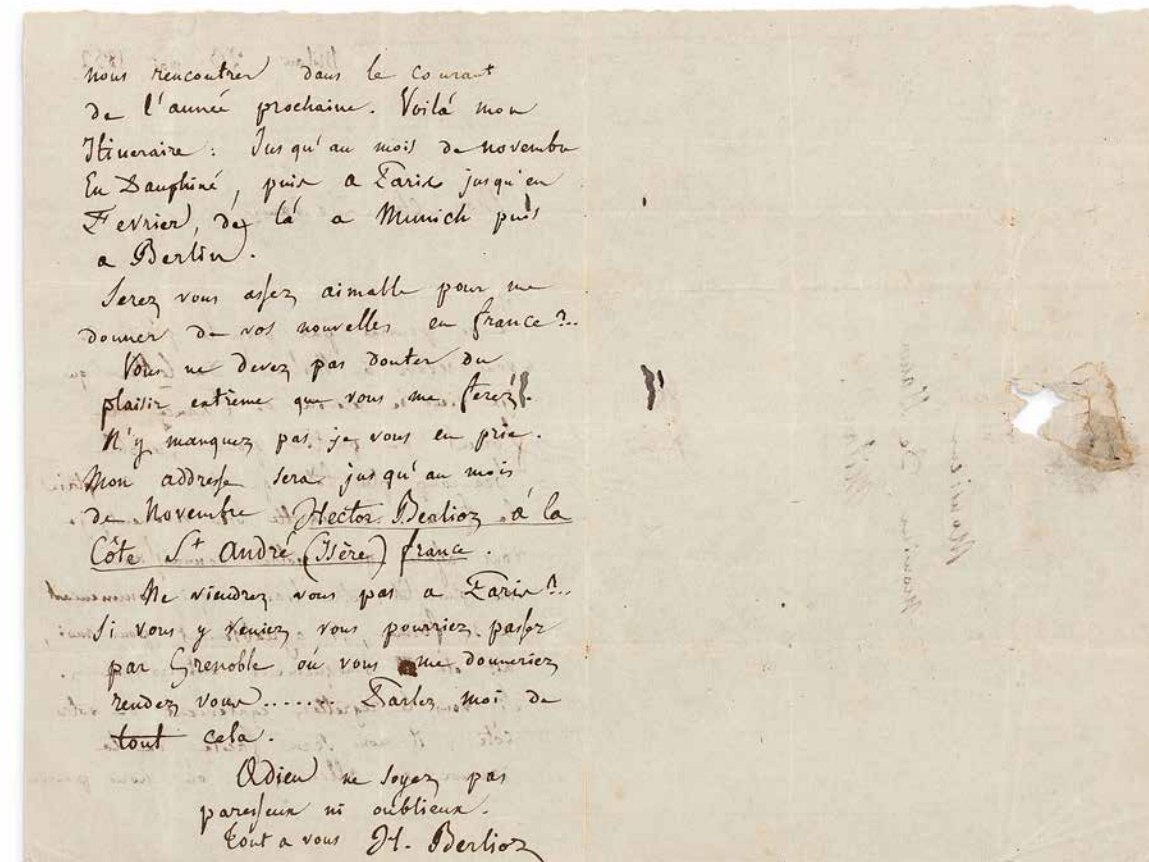 nous rencontrer dans le courant
de l'année prochaine. Voilà mon
Itineraire : Jusqu'au mois de novembre
En Dauphiné, puis a Paris jusqu'en
Fevrier, de là a Munich puis
a Berlin.
Serez vous assez aimable pour me
donner de vos nouvelles en france ?..
Vous ne devez pas douter du
plaisir extrême que vous me ferez.
N'y manquez pas, je vous en prie.
Mon addresse sera jusqu'au mois
de Novembre Hector Berlioz à la
Côte St André (Isère) france.
Ne viendrez vous pas a Paris ?..
Si vous y veniez, vous pourriez passer
par Grenoble où vous me donneriez
rendez vous...... Parlez moi de
tout cela.
Adieu ne soyez pas
paresseux ni oublieux.
tout a vous H. Berlioz